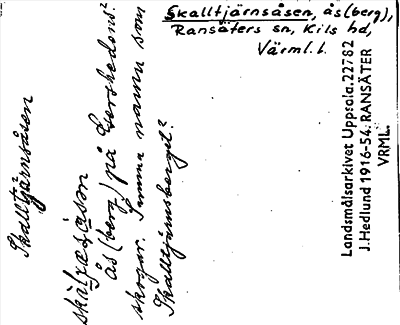 Skalltjärnsåsen, ås (berg),
Ransäters sn, Kils hd,
Värml. l.
Skalltjärnsåsen
ås (berg) på Gersheds
skogar. Samma namn som
Skalltjärnsberget?
Landsmålsarkivet Uppsala. 22782
J. Hedlund 1916-54. RANSÄTER
VRML.